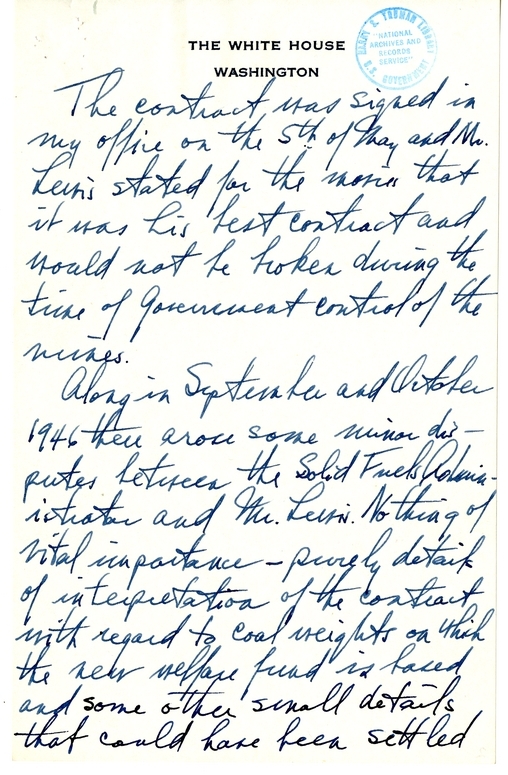 THE WHITE HOUSE
WASHINGTON
HARRY S. TRUMAN LIBRARY
"NATIONAL
ARCHIVES AND
RECORDS
SERVICE"
U.S. GOVERNMENT
The contract was signed in
my office on the 5th of May and Mr.
Lewis stated for the movies that
it was his best contract and
would not be broken during the
time of Government control of the
mines.
Along in September and October
1946 there arose some minor dis-
putes between the Solid Fuels Admin-
istrator and Mr. Lewis. Nothing of
vital importance - purely details
of interpretation of the contract
with regard to coal weights on which
the new welfare fund is based
and some other small details
that could have been settled